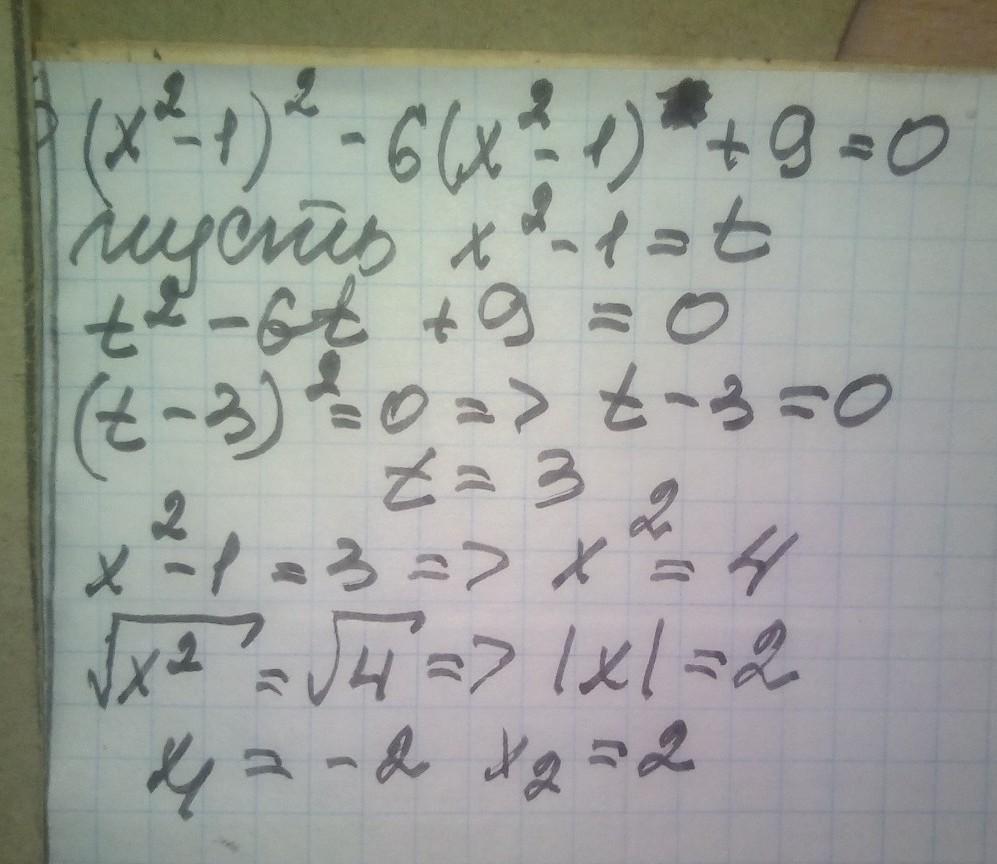 (x²-1)² - 6(x²-1) + 9 = 0
пусть x² - 1 = t
t² - 6t + 9 = 0
(t - 3)² = 0 => t - 3 = 0
t = 3
x² - 1 = 3 => x² = 4
√x² = √4 => |x| = 2
x₁ = - 2 x₂ = 2